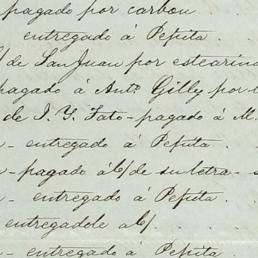 pagado por carbon
entregado á Pepita .
de San Juan por estearina
pagado á Antº Gilly por
de J. Y. Tato - pagado á M.
- entregado á Pepita .
- pagado á c/ de su letra -
- entregado á Pepita .
entregadole a c/
- entregado á Pepita .